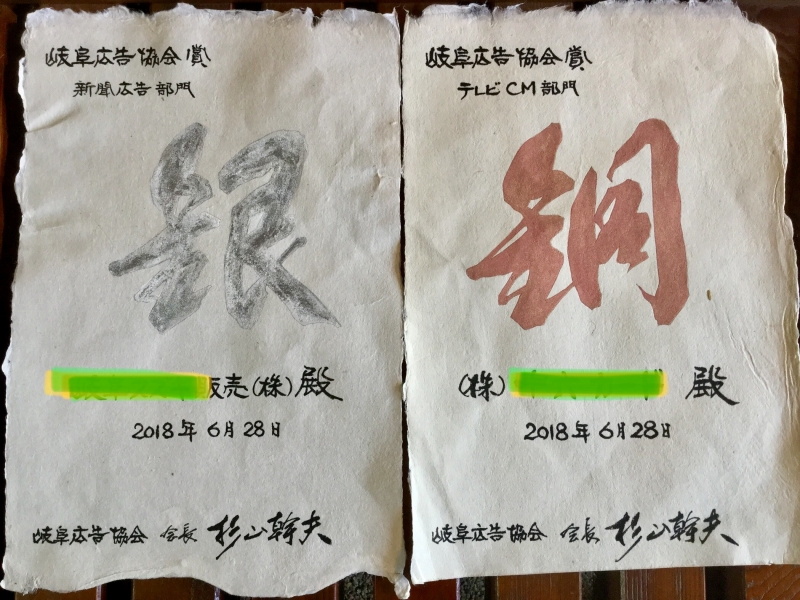 岐阜広告協会賞
新聞広告部門
銀
販売(株)殿
2018年6月28日
岐阜広告協会 会長 杉山幹夫
岐阜広告協会賞
テレビCM部門
銅
(株) 殿
2018年6月28日
岐阜広告協会 会長 杉山幹夫